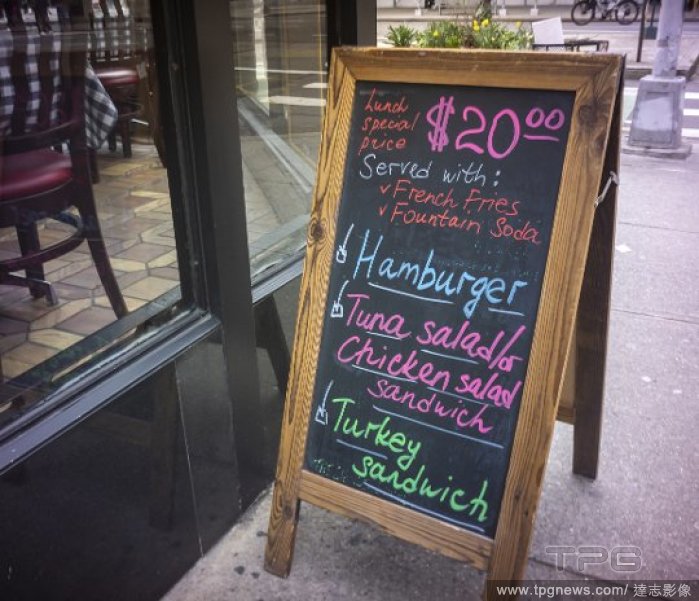 Lunch
special
price
$20.00
Served with:
✓ French Fries
✓ Fountain Soda
Hamburger
Tuna salad/or
Chicken salad
sandwich
Turkey
sandwich
TPG
www.tpgnews.com/ 達志影像